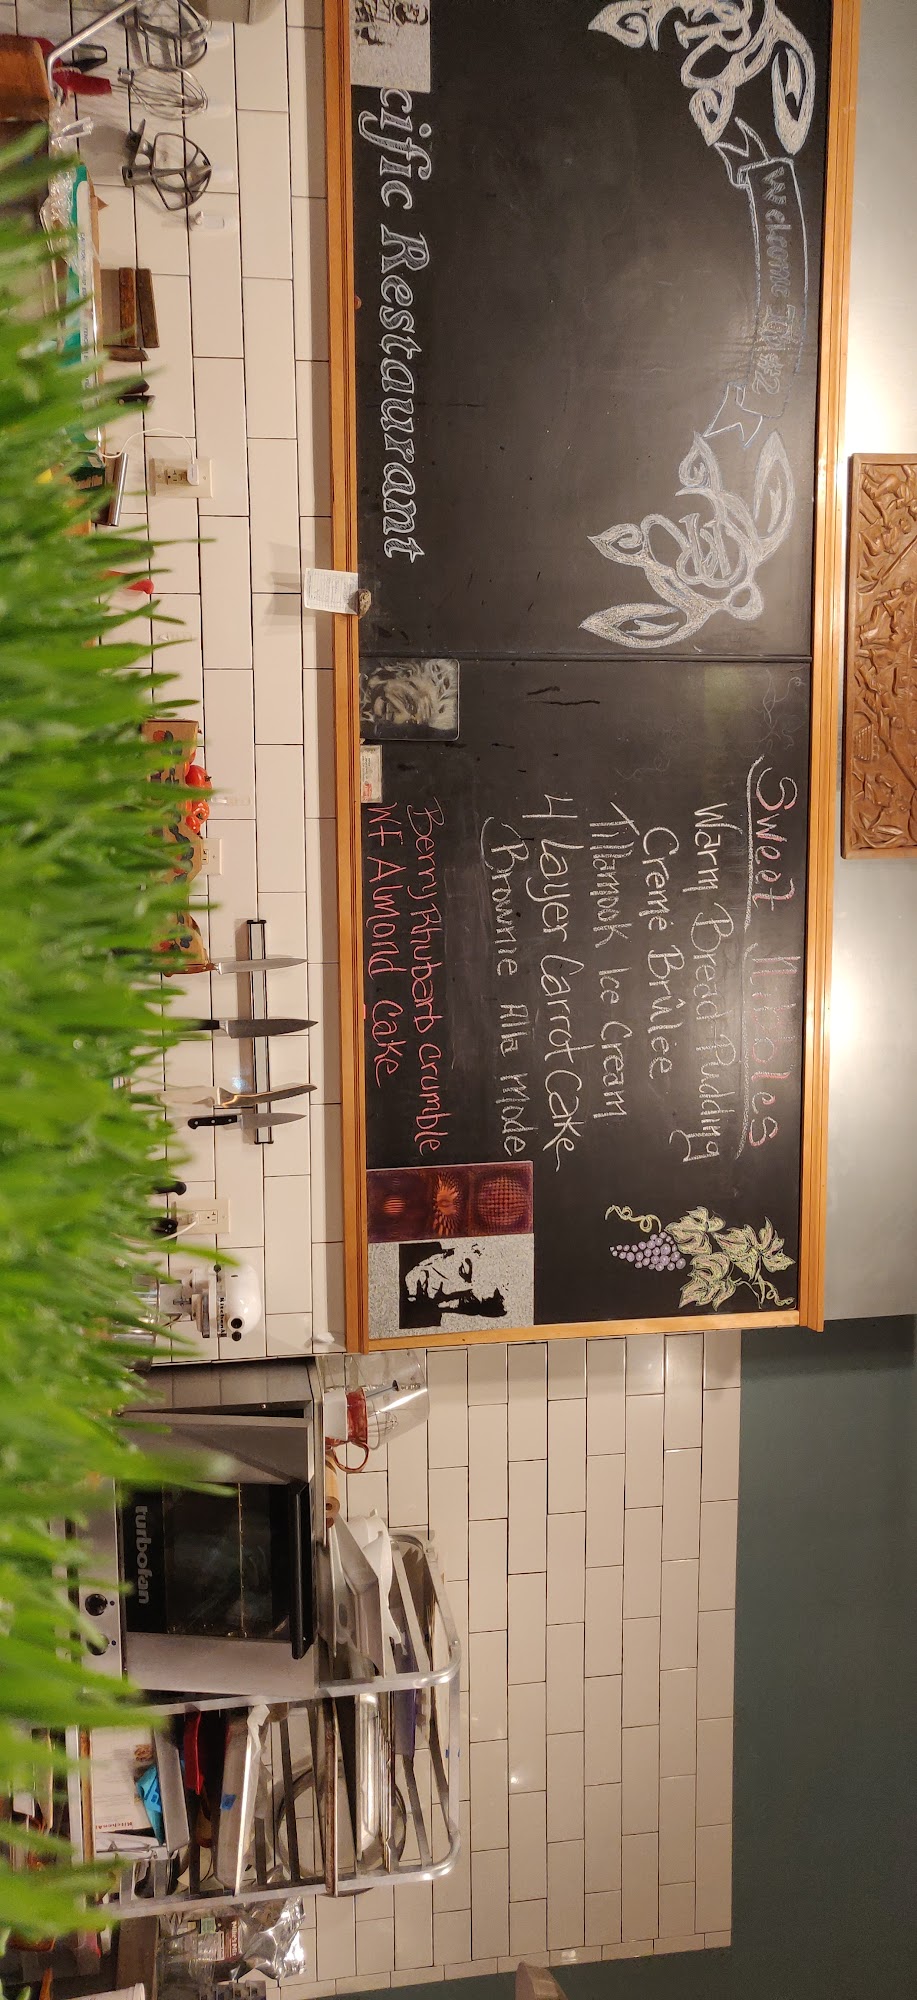 Welcome
cific Restaurant
Sweet Nibbles
Warm Bread Pudding
Creme Brûlée
Tillamook Ice Cream
4 Layer Carrot Cake
Brownie Alla Mode
Berry Rhubarb Crumble
WF Almond Cake
KitchenAid
turbofan